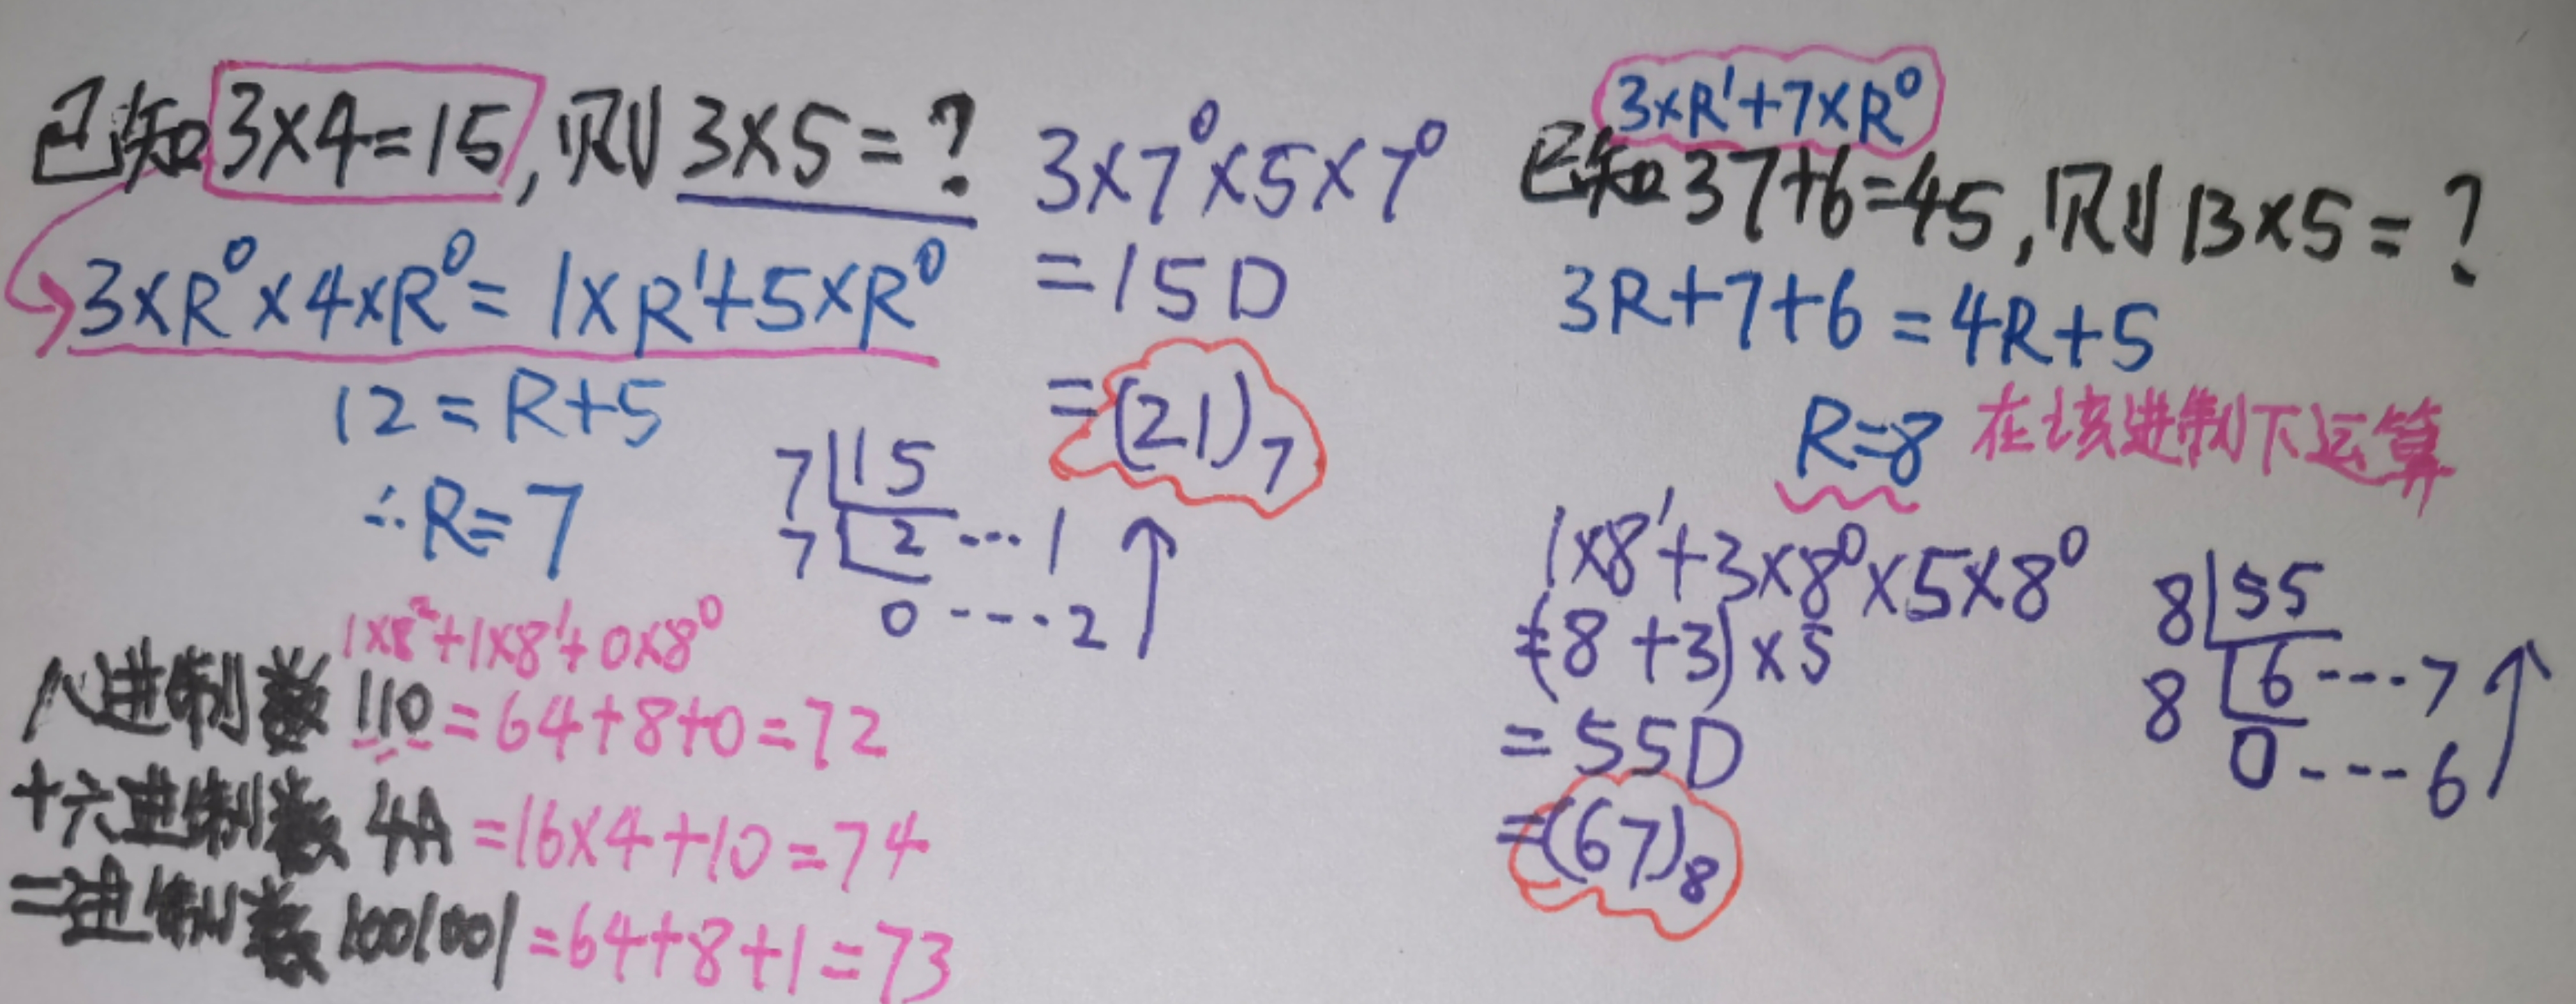 已知3×4=15,则3×5=?
3×R⁰×4×R⁰=1×R¹+5×R⁰
12=R+5
∴R=7
3×7⁰×5×7⁰
=15D
=(21)₇
7 15
7 2 ---1
0 ----2
1×8²+1×8¹+0×8⁰
八进制数 110=64+8+0=72
十六进制数 4A=16×4+10=74
二进制数 1001001=64+8+1=73
3×R¹+7×R⁰
已知37+6=45,则13×5=?
3R+7+6=4R+5
R=8 在该进制下运算
1×8¹+3×8⁰×5×8⁰
=(8+3)×5
=55D
=(67)₈
8 55
8 6 ----7
0 ----6